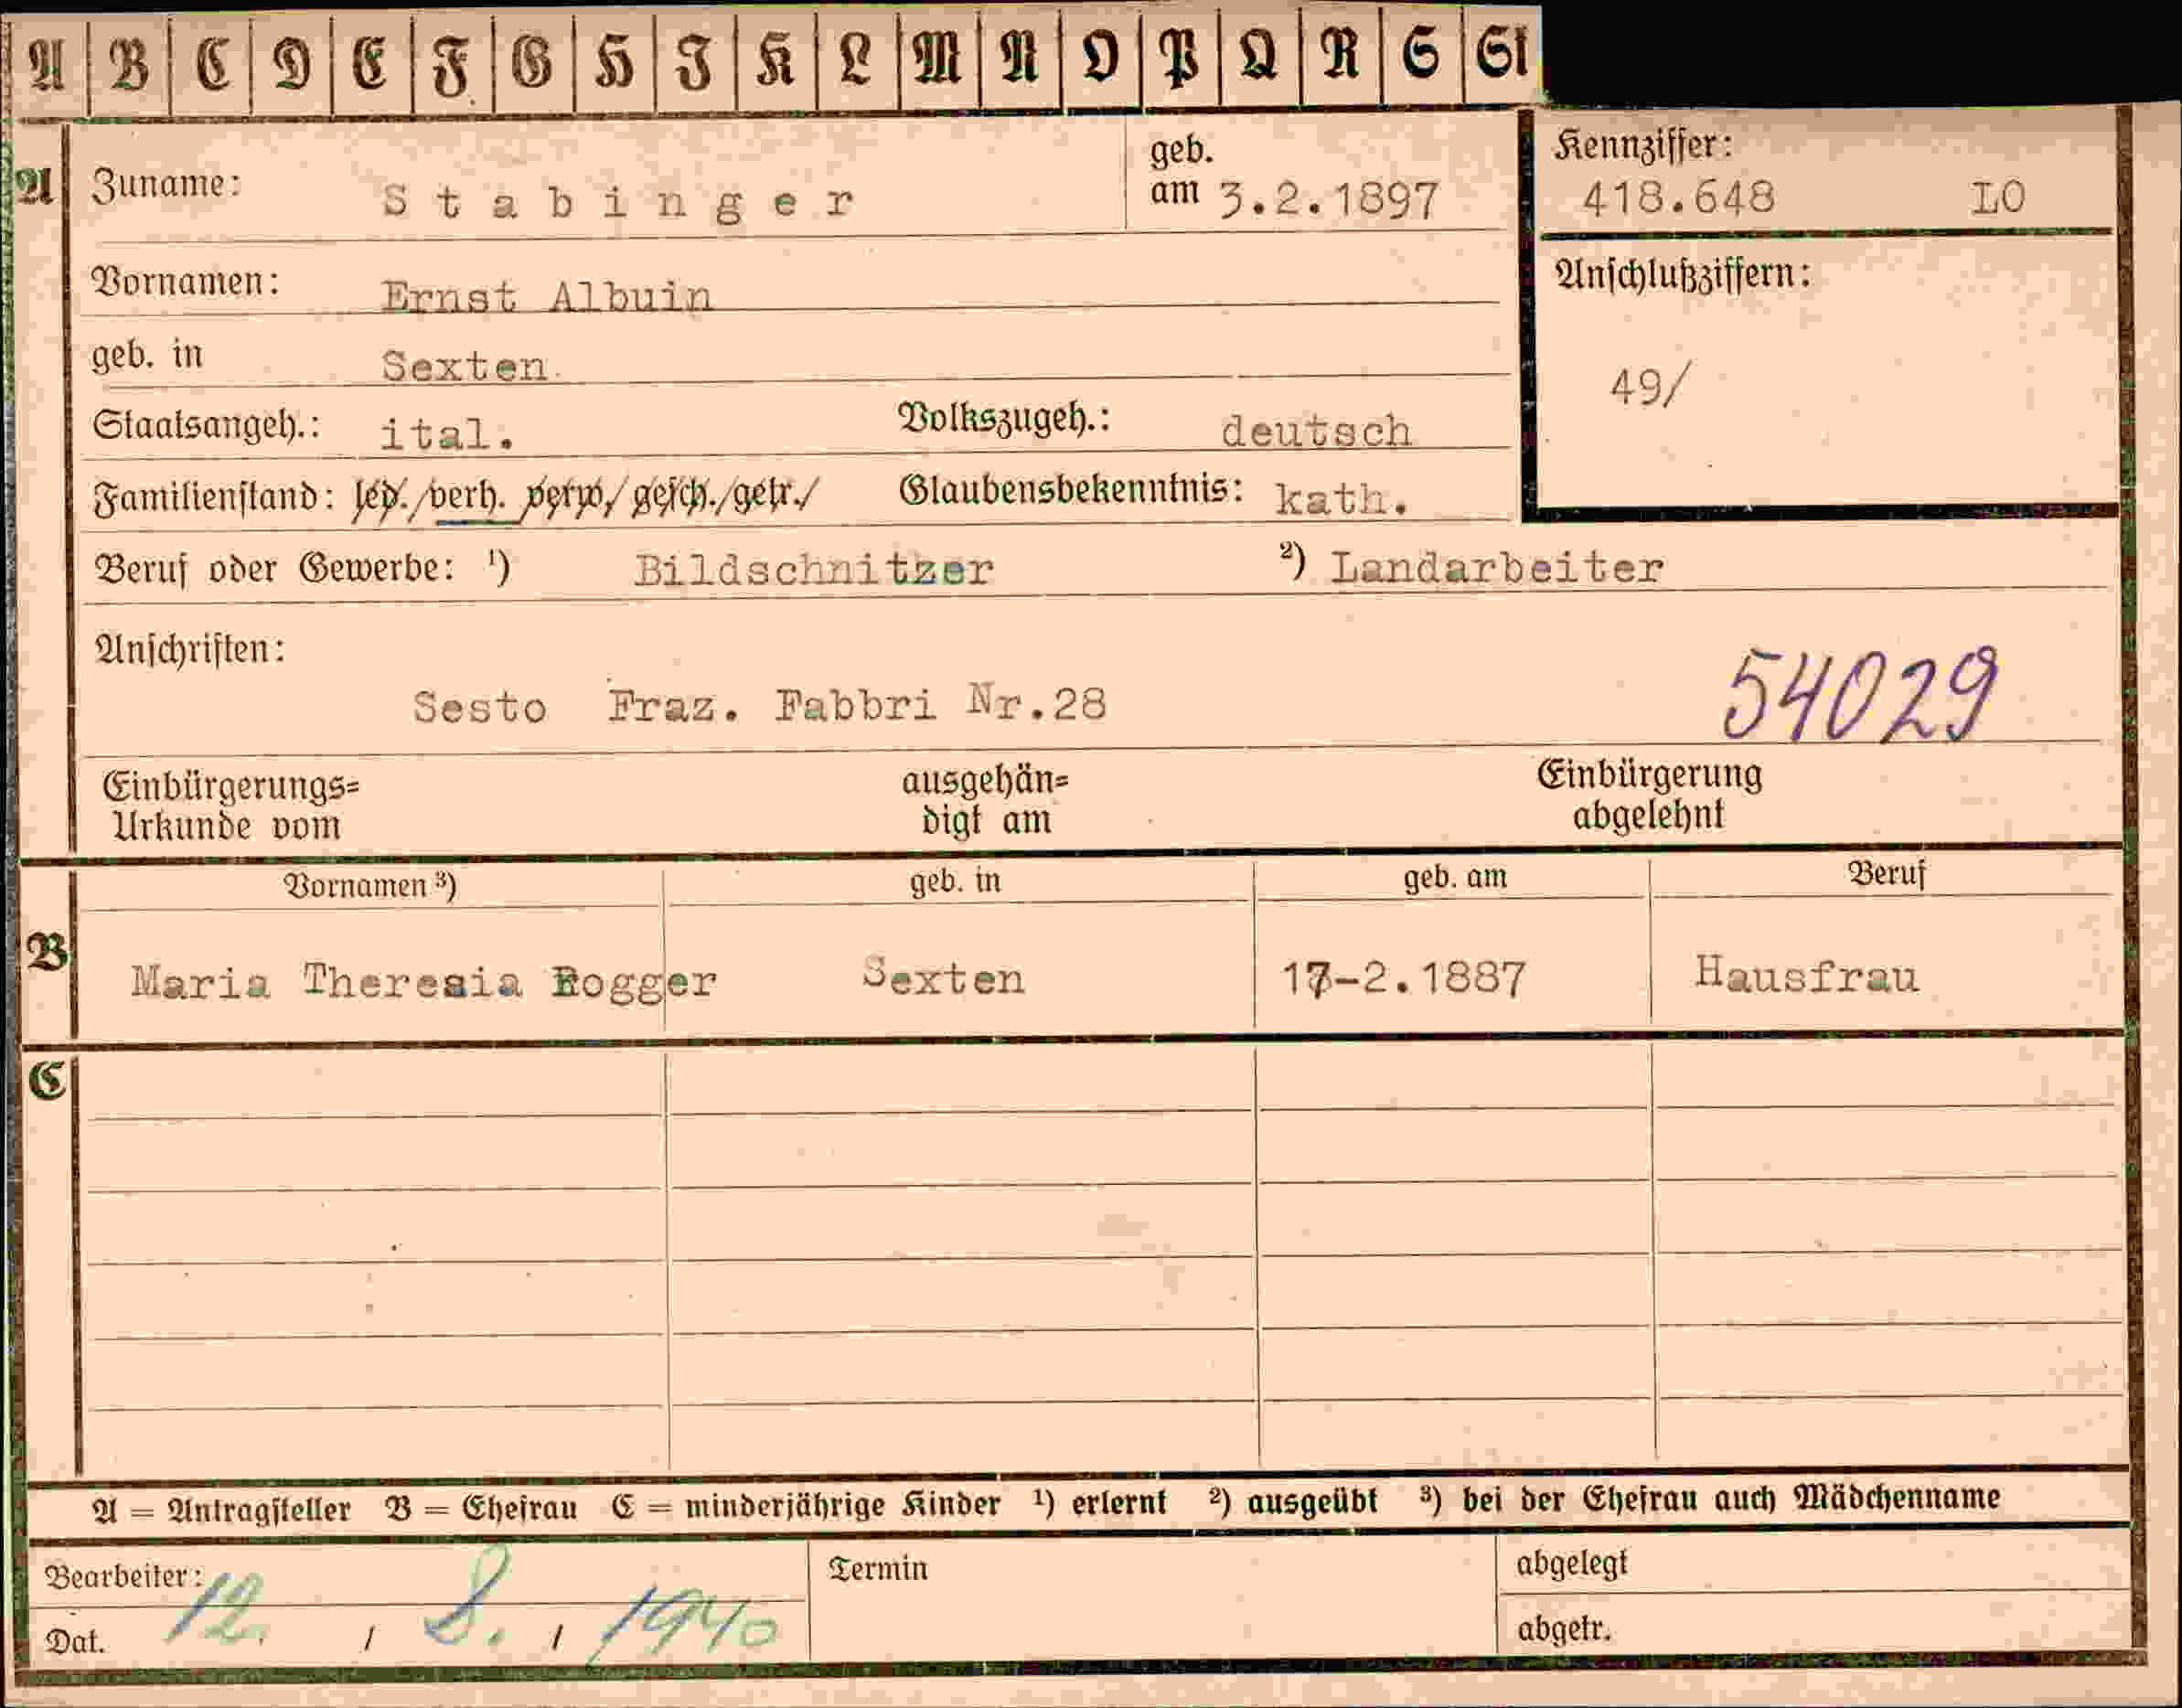 A B C D E F G H I K L M N O P Q R S St
A Zuname: Stabinger geb. am 3.2.1897 Kennziffer: 418.648 LO
Vornamen: Ernst Albuin Anschlußziffern:
geb. in Sexten. 49/
Staatsangeh.: ital. Volkszugeh.: deutsch
Familienstand: led./verh. verw./gesch./getr./ Glaubensbekenntnis: kath.
Beruf oder Gewerbe: ¹) Bildschnitzer ²) Landarbeiter
Anschriften:
Sesto Fraz. Fabbri Nr.28 54029
Einbürgerungs= ausgehän= Einbürgerung
Urkunde vom digt am abgelehnt
Vornamen ³) geb. in geb. am Beruf
B Maria Theresia Rogger Sexten 17-2.1887 Hausfrau
C
A = Antragsteller B = Ehefrau C = minderjährige Kinder ¹) erlernt ²) ausgeübt ³) bei der Ehefrau auch Mädchenname
Bearbeiter: Termin abgelegt
Dat. 12. / 8. / 1940 abgetr.